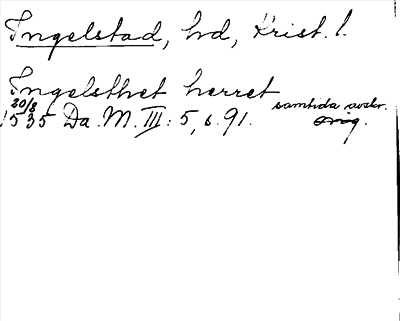 Ingelstad, hd, Krist. l.
Ingelsthet herret
20/8 samtida avskr.
1535 Da. M. III: 5, s. 91. orig.